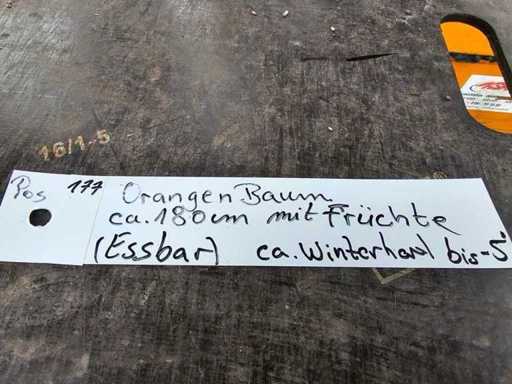 16/1-5
Pos 177 Orangen Baum
ca. 180cm mit Früchte
(Essbar) ca. Winterhart bis -5°